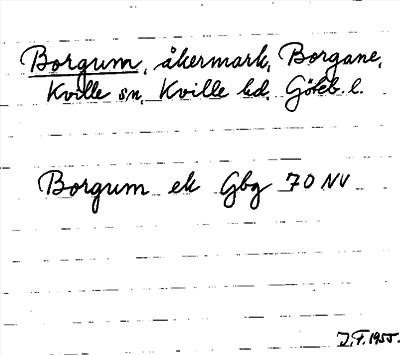 Borgum, åkermark, Borgane,
Kville sn. Kville hd. Göteb. l.
Borgum ek Gbg 70 NV
J.F. 1955.